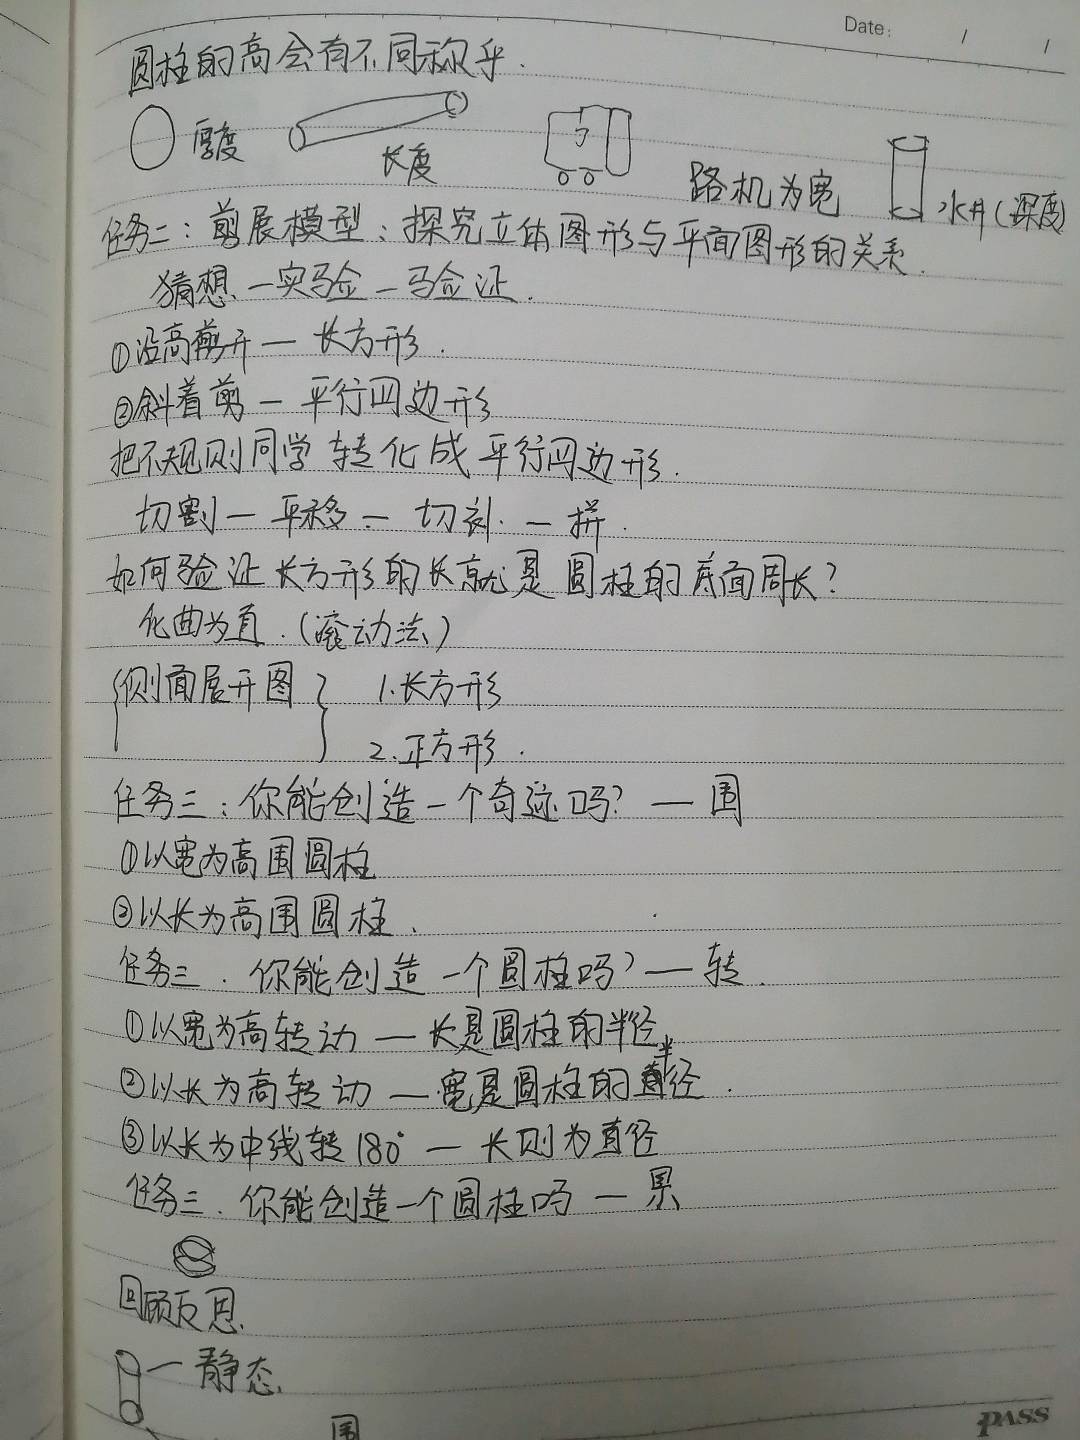 Date: / /
圆柱的高会有不同称乎.
厚度
长度
路机为宽
水井(深度)
任务二:剪展模型:探究立体图形与平面图形的关系.
猜想—实验—验证.
①沿高剪开—长方形.
②斜着剪—平行四边形
把不规则同学转化成平行四边形.
切割—平移—切割.—拼.
如何验证长方形的长就是圆柱的底面周长?
化曲为直.(滚动法)
侧面展开图
1.长方形
2.正方形.
任务三:你能创造一个奇迹吗?—围
①以宽为高围圆柱
②以长为高围圆柱.
任务三.你能创造一个圆柱吗?—转.
①以宽为高转动—长是圆柱的半径
②以长为高转动—宽是圆柱的半径.
③以长为中线转180°—长则为直径
任务三.你能创造一个圆柱吗—累
回顾反思.
—静态.
围
PASS